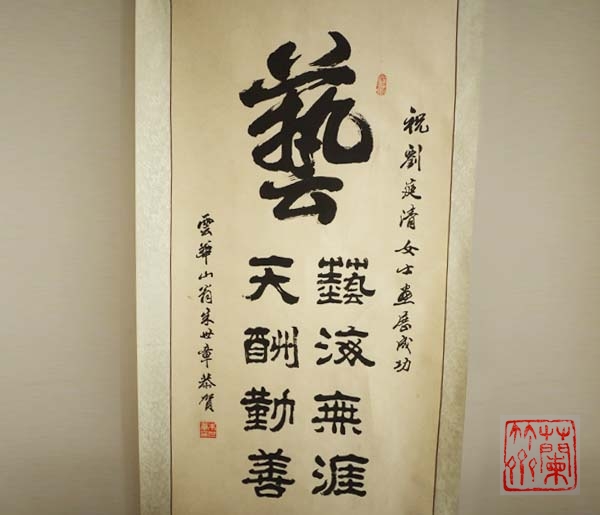 藝
祝劉莚清女士畫展成功
藝海無涯
天酬勤善
雲華山翁朱世章恭賀
蘭